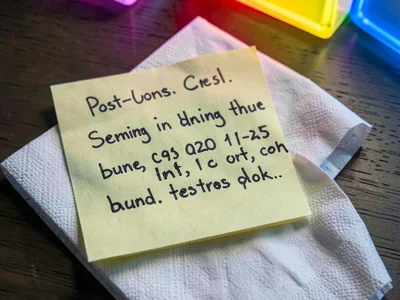 Post-Lons. Cresl.
Seming in dning thue
bune, cgs 020 11-25
Int, 1c ort, coh
bund. testros plok..